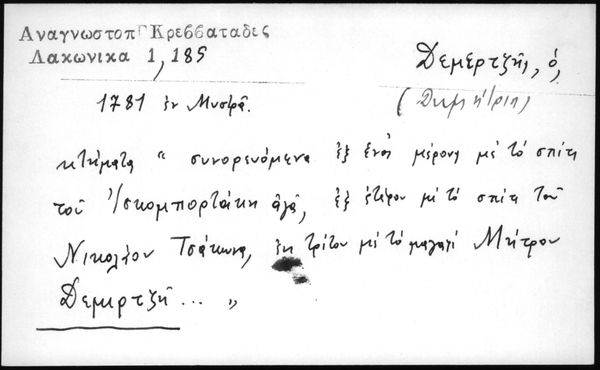 Αναγνωστοπ Κρεββαταδες
Λακωνικα 1,185
Δεμερτζῆς, ὁ,
1781 ἐν Μυστρᾷ.
(Δημήτρης)
κτήματα " συνορευόμενα ἐξ ἑνὸς μέρους μὲ τὸ σπίτι
τοῦ Ἰσκομπορτάκη ἀγᾶ, ἐξ ἑτέρου μὲ τὸ σπίτι τοῦ
Νικολάου Τσάκωνα, ἐκ τρίτου μὲ τὸ μαγαζὶ Μήτρου
Δεμερτζῆ ... "